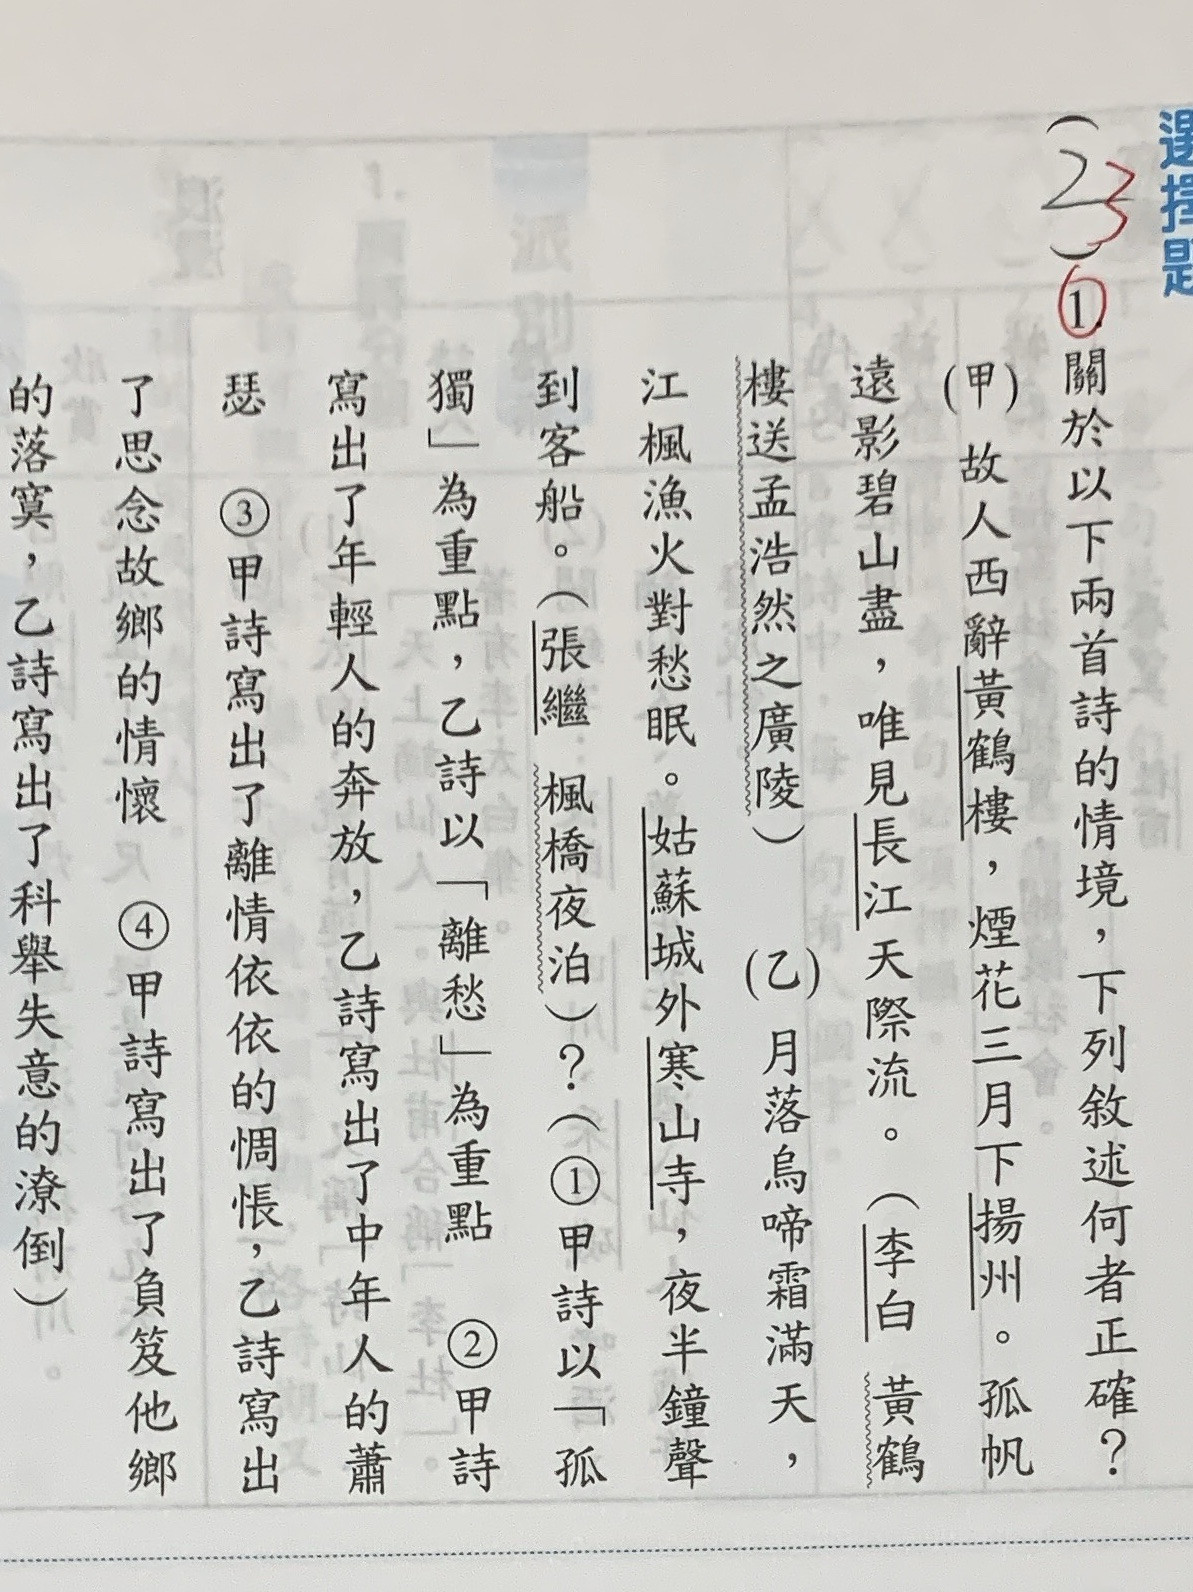 選擇題
(23)1.關於以下兩首詩的情境，下列敘述何者正確？
(甲)故人西辭黃鶴樓，煙花三月下揚州。孤帆
遠影碧山盡，唯見長江天際流。（李白 黃鶴
樓送孟浩然之廣陵） (乙)月落烏啼霜滿天，
江楓漁火對愁眠。姑蘇城外寒山寺，夜半鐘聲
到客船。（張繼 楓橋夜泊）？（①甲詩以「孤
獨」為重點，乙詩以「離愁」為重點 ②甲詩
寫出了年輕人的奔放，乙詩寫出了中年人的蕭
瑟 ③甲詩寫出了離情依依的惆悵，乙詩寫出
了思念故鄉的情懷 ④甲詩寫出了負笈他鄉
的落寞，乙詩寫出了科舉失意的潦倒）